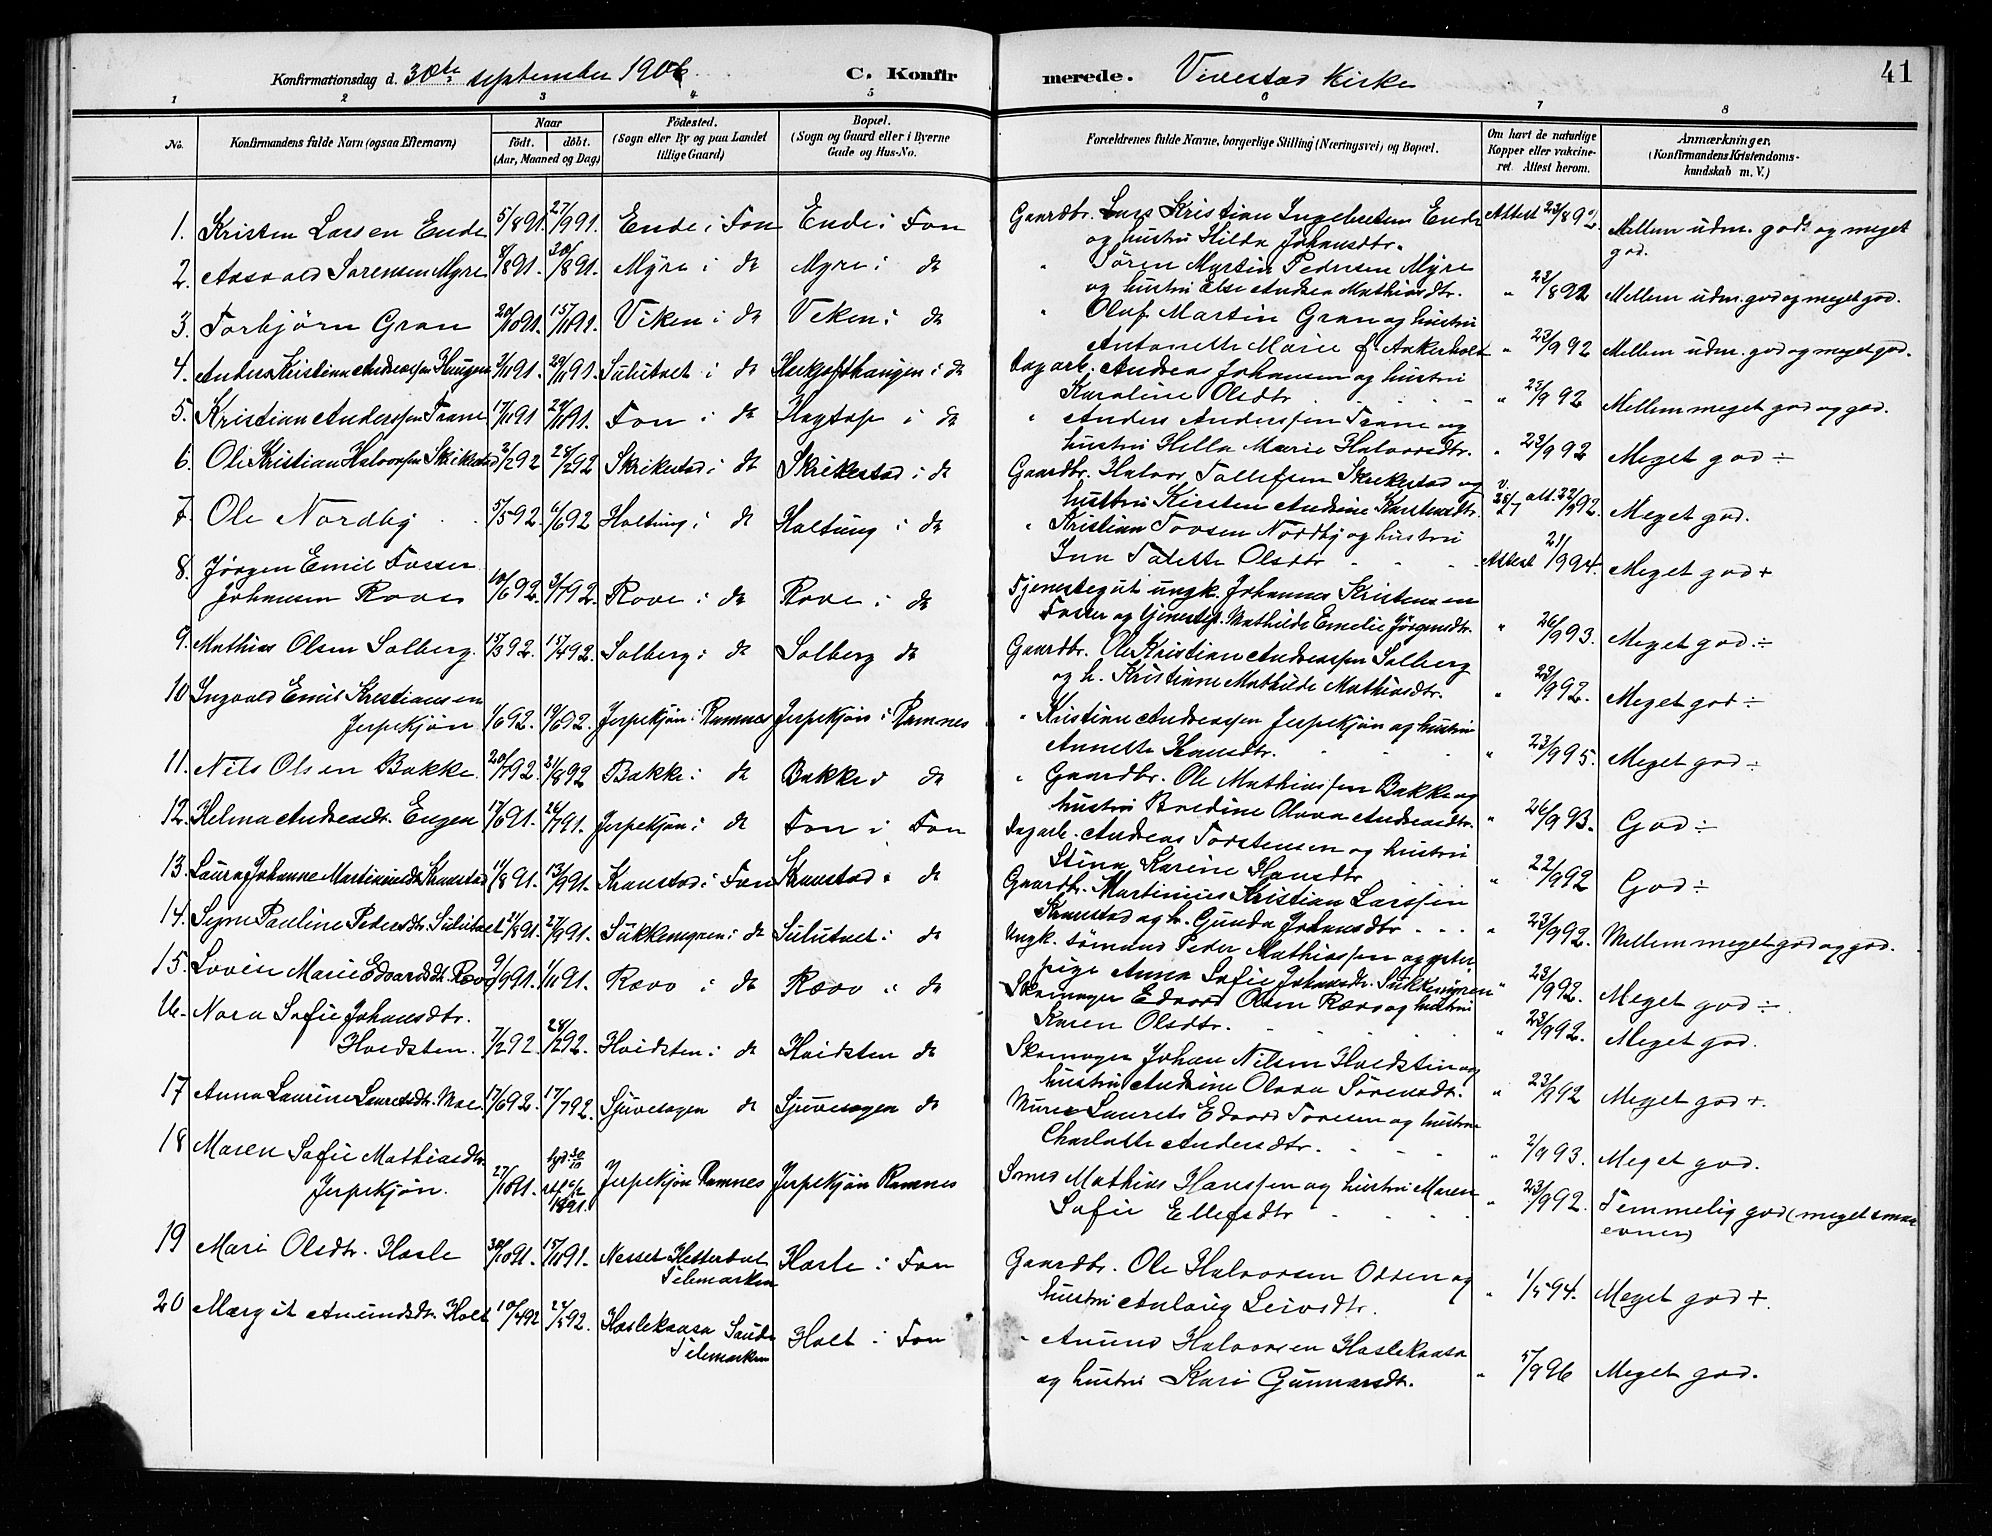 41
Konfirmationsdag d. 30te september 1906. C. Konfirmerede. Vivestad Kirke
1 2 3 4 5 6 7 8
No. Konfirmandens fulde Navn (ogsaa Efternavn) Naar födt. döbt. (Aar, Maaned og Dag) Födested. (Sogn eller By og paa Landet tillige Gaard) Bopæl. (Sogn og Gaard eller i Byerne Gade og Hus-No. Forældrenes fulde Navne, borgerlige Stilling (Næringsvei) og Bopæl. Om havt de naturlige Kopper eller vakcineret. Attest herom. Anmærkninger. (Konfirmandens Kristendomskundskab m. V.)
1. Kristen Larsen Ende 5/8 91. 27/9 91. Ende i Fon Ende i Fon Gaardbr. Lars Kristian Ingebretsen Ende Attest 23/8 92. Mellem udm. god og meget god.
og hustru Hilda Johansdtr.
2. Aasvald Sørensen Myre 8/8 91. 30/8 91. Myre i do Myre i do " Søren Martin Pedersen Myre
og hustru Else Andrea Mathiasdtr. " 23/8 92 Mellem udm. god og meget god.
3. Torbjörn Gran 20/10 91. 15/11 91. Viken i do Viken i do " Oluf Martin Gran og hustru
Antonette Marie f. Aakerholt " 23/9 92 Mellem udm. god og meget god.
4. Anders Kristian Andreassen Haugen 3/11 91. 29/11 91. Sulutvet i do Herkgofthaugen i do Dagarb. Andreas Johansen og hustru
Karoline Olsdtr " 23/9 92 Mellem meget god og god.
5. Kristian Anderssen Trane 17/11 91 29/11 91. Fon i do Hagtop i do " Anders Anderssen Trane og
hustru Hella Marie Halvorsdtr. " 23/9 92 Meget god ÷
6. Ole Kristian Halvorsen Skrikestad 3/2 92 28/2 92 Skrikestad i do Skrikestad i do Gaardbr. Halvor Tollefsen Skrikestad og
hustru Kirsten Andrine Karstensdtr. v. 25/7 att. 22/9 92. Meget god.
7. Ole Nordby 5/5 92. 6/6 92 Holtung i do Holtung i do " Kristian Tovsen Nordby og hustru
Inn Talette Olsdtr Attest 21/9 94. Meget god +
8. Jörgen Emil Fosser
Johansen Rove 10/6 92. 3/7 92. Rove i do Rove i do Tjenestegut ungk. Johannes Kristensen
Fosser og tjenestep. Mathilde Emelie Jörgensdtr. " 26/9 93. Meget god. ÷
9. Mathias Olsen Solberg. 15/3 92. 15/4 92. Solberg i do Solberg do Gaardbr. Ole Kristian Andreassen Solberg
og h. Kristiane Mathilde Mathiasdtr. " 23/9 92. Meget god ÷
10 Ingvald Emil Kristiansen
Jerpekjön 1/6 92. 19/6 92. Jerpekjön i Ramnes Jerpekjön i Ramnes " Kristian Andreassen Jerpekjön og hustru
Annette Hansdtr. " 23/9 95. Meget god ÷
11. Nils Olsen Bakke. 20/7 92. 21/8 92 Bakke i do Bakke i do " Gaardbr. Ole Mathiassen Bakke og
hustru Bredine Olava Andreasdtr. " 26/9 93. God ÷
12. Helma Andreasdtr. Engen 17/6 91. 26/7 91. Jerpekjön i do Fon i Fon Dagarb. Andreas Torstensen og hustru
Stina Karine Hansdtr " 22/9 92 God ÷
13. Laura Johanne Martiniusdtr Kranstad 11/8 91. 13/9 91. Kranstad i Fon Kranstad i do Gaardbr. Martinius Kristian Larssen
Kranstad og h. Gunda Johansdtr " 23/9 92. Mellem meget god og god.
14. Signe Pauline Pedersdtr. Sulutvet 21/8 91. 27/9 91. Sukkemyren i do Sulutvet i do Ungk. sömand Peder Mathiassen og
pige Anna Sofie Johansdtr. Sukkemyren " 23/9 92. Meget god ÷
15. Lovise Marie Edvardsdtr. Rævo 9/9 91. 1/11 91. Rævo i do Rævo i do Skomager Edvard Olsen Rævo og hustru
Karen Olsdtr. " 23/9 92. Meget god.
16. Nora Sofie Johansdtr.
Hvidsten. 7/2 92. 28/2 92. Hvidsten i do Hvidsten do Skomager Johan Nilsen Hvidsten og
hustru Andrine Olava Sörensdtr. " 23/9 92 Meget god +.
17 Anna Laurine Lauretsdtr. Moe. 17/6 92. 17/7 92. Sjuvesagen do Sjuvesagen do Murer Laurets Edvard Toresen og hustru
Charlotte Andersdtr. " 2/9 93. Meget god.
18 Maren Sofie Mathiasdtr.
Jerpekjön. 27/10 91. Jerpekjön Ramnes Jerpekjön Ramnes Smed Mathias Hanssen og hustru Maren
Sofie Ellefsdtr " 23/9 92. Temmelig god (meget smaa evner)
19 Mari Olsdtr. Hasle 30/10 91. 15/11 91. Nesset Hetterdal Telemarken Hasle i Fon Gaardbr. Ole Halvorsen Odden og
hustru Anlaug Leivsdtr. " 1/5 94. Meget god +.
20 Margit Anundsdtr. Holt 10/4 92 24/5 92. Haslekaasa Saude Telemarken Holt i Fon " Anund Halvorsen Haslekaasa
og hustru Kari Gunnarsdtr. " 5/9 96 Meget god.